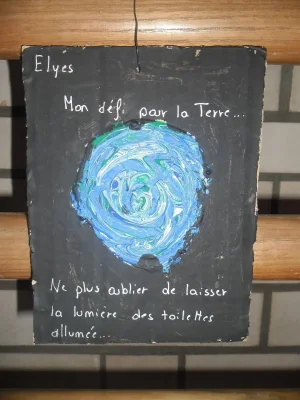 Elyes
Mon défi pour la Terre...
Ne plus oublier de laisser
la lumière des toilettes
allumée...